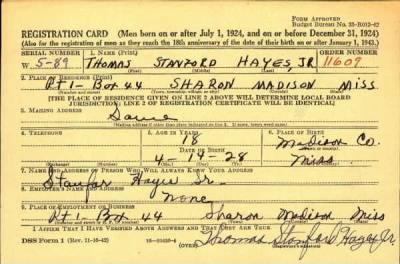 FORM APPROVED
Budget Bureau No. 33-R012-42
REGISTRATION CARD—(Men born on or after July 1, 1924, and on or before December 31, 1924)
(Also for the registration of men as they reach the 18th anniversary of the date of their birth on or after January 1, 1943.)
SERIAL NUMBER 1. NAME (Print) ORDER NUMBER
W 5-89 THOMAS STANFORD HAYES, JR 11609
(First) (Middle) (Last)
2. PLACE OF RESIDENCE (Print)
Rt 1- Box 44 SHARON MADISON MISS
[THE PLACE OF RESIDENCE GIVEN ON LINE 2 ABOVE WILL DETERMINE LOCAL BOARD
JURISDICTION; LINE 2 OF REGISTRATION CERTIFICATE WILL BE IDENTICAL]
3. MAILING ADDRESS
Same
[Mailing address if other than place indicated on line 2. If same, insert word same]
4. TELEPHONE 5. AGE IN YEARS 6. PLACE OF BIRTH
18 Madison Co.
DATE OF BIRTH
4-14-28 Miss.
(Exchange) (Number) (Mo.) (Day) (Yr.)
7. NAME AND ADDRESS OF PERSON WHO WILL ALWAYS KNOW YOUR ADDRESS
Hayes Sr.
8. EMPLOYER'S NAME AND ADDRESS
None
9. PLACE OF EMPLOYMENT OR BUSINESS
Rt 1 Box 44 Sharon Madison Miss
I AFFIRM THAT I HAVE VERIFIED ABOVE ANSWERS AND THAT THEY ARE TRUE.
DSS Form 1 (Rev. 11-16-42) (OVER) Thomas Stanford Hayes Jr.